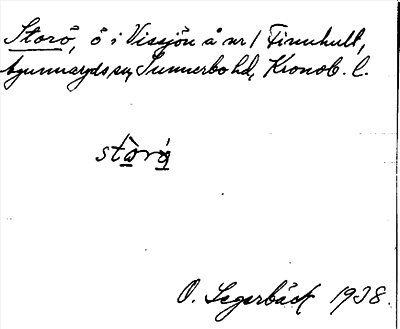 Storö, ö i Vissjön å nr 1 Finnhult,
Agunnaryds sn, Sunnerbo hd, Kronob. l.
stòrǫ́
O. Segerbäck 1938.